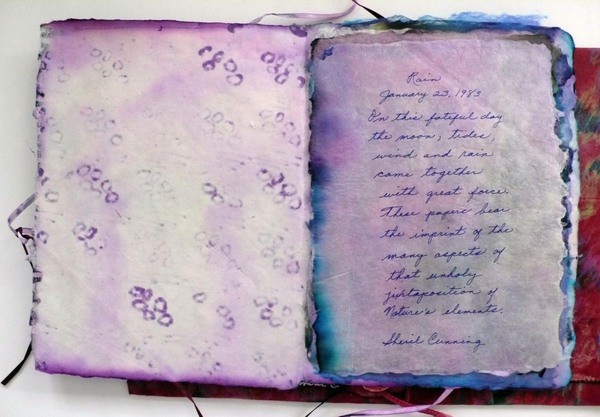 Rain
January 23, 1983
On this fateful day
the moon, tides,
wind and rain
came together
with great force.
These papers bear
the imprint of the
many aspects of
that unholy
juxtaposition of
Nature's elements.
Sheril Cunning